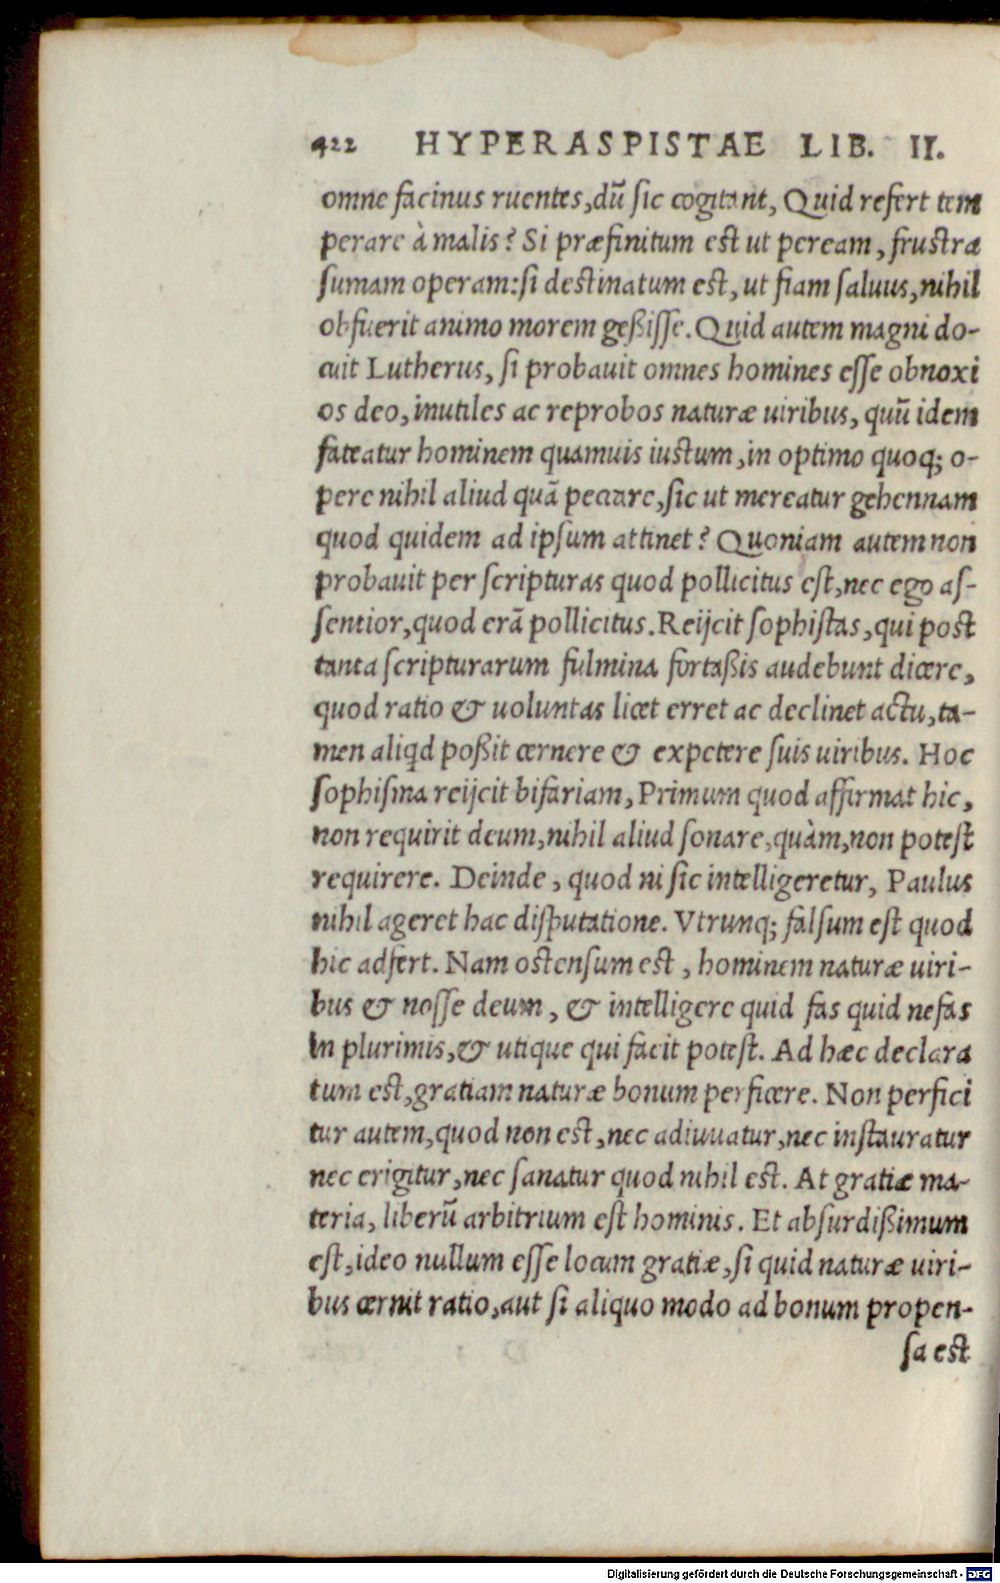 422 HYPERASPISTAE LIB. II.
omne facinus ruentes, dū sic cogitant, Quid refert tem
perare à malis? Si præfinitum est ut peream, frustra
sumam operam: si destinatum est, ut fiam saluus, nihil
obfuerit animo morem geßisse. Quid autem magni do-
cuit Lutherus, si probauit omnes homines esse obnoxi
os deo, inutiles ac reprobos naturæ uiribus, quū idem
fateatur hominem quamuis iustum, in optimo quoq; o-
pere nihil aliud quā peccare, sic ut mereatur gehennam
quod quidem ad ipsum attinet? Quoniam autem non
probauit per scripturas quod pollicitus est, nec ego as-
sentior, quod erā pollicitus. Reijcit sophistas, qui post
tanta scripturarum fulmina fortaßis audebunt dicere,
quod ratio & uoluntas licet erret ac declinet actu, ta-
men aliqd poßit cernere & expetere suis uiribus. Hoc
sophisma reijcit bifariam, Primum quod affirmat hic,
non requirit deum, nihil aliud sonare, quàm, non potest
requirere. Deinde, quod ni sic intelligeretur, Paulus
nihil ageret hac disputatione. Vtrunq; falsum est quod
hic adfert. Nam ostensum est, hominem naturæ uiri-
bus & nosse deum, & intelligere quid fas quid nefas
in plurimis, & utique qui facit potest. Ad hæc declara
tum est, gratiam naturæ bonum perficere. Non perfici
tur autem, quod non est, nec adiuuatur, nec instauratur
nec erigitur, nec sanatur quod nihil est. At gratiæ ma-
teria, liberū arbitrium est hominis. Et absurdißimum
est, ideo nullum esse locum gratiæ, si quid naturæ uiri-
bus cernit ratio, aut si aliquo modo ad bonum propen-
sa est
Digitalisierung gefördert durch die Deutsche Forschungsgemeinschaft - DFG